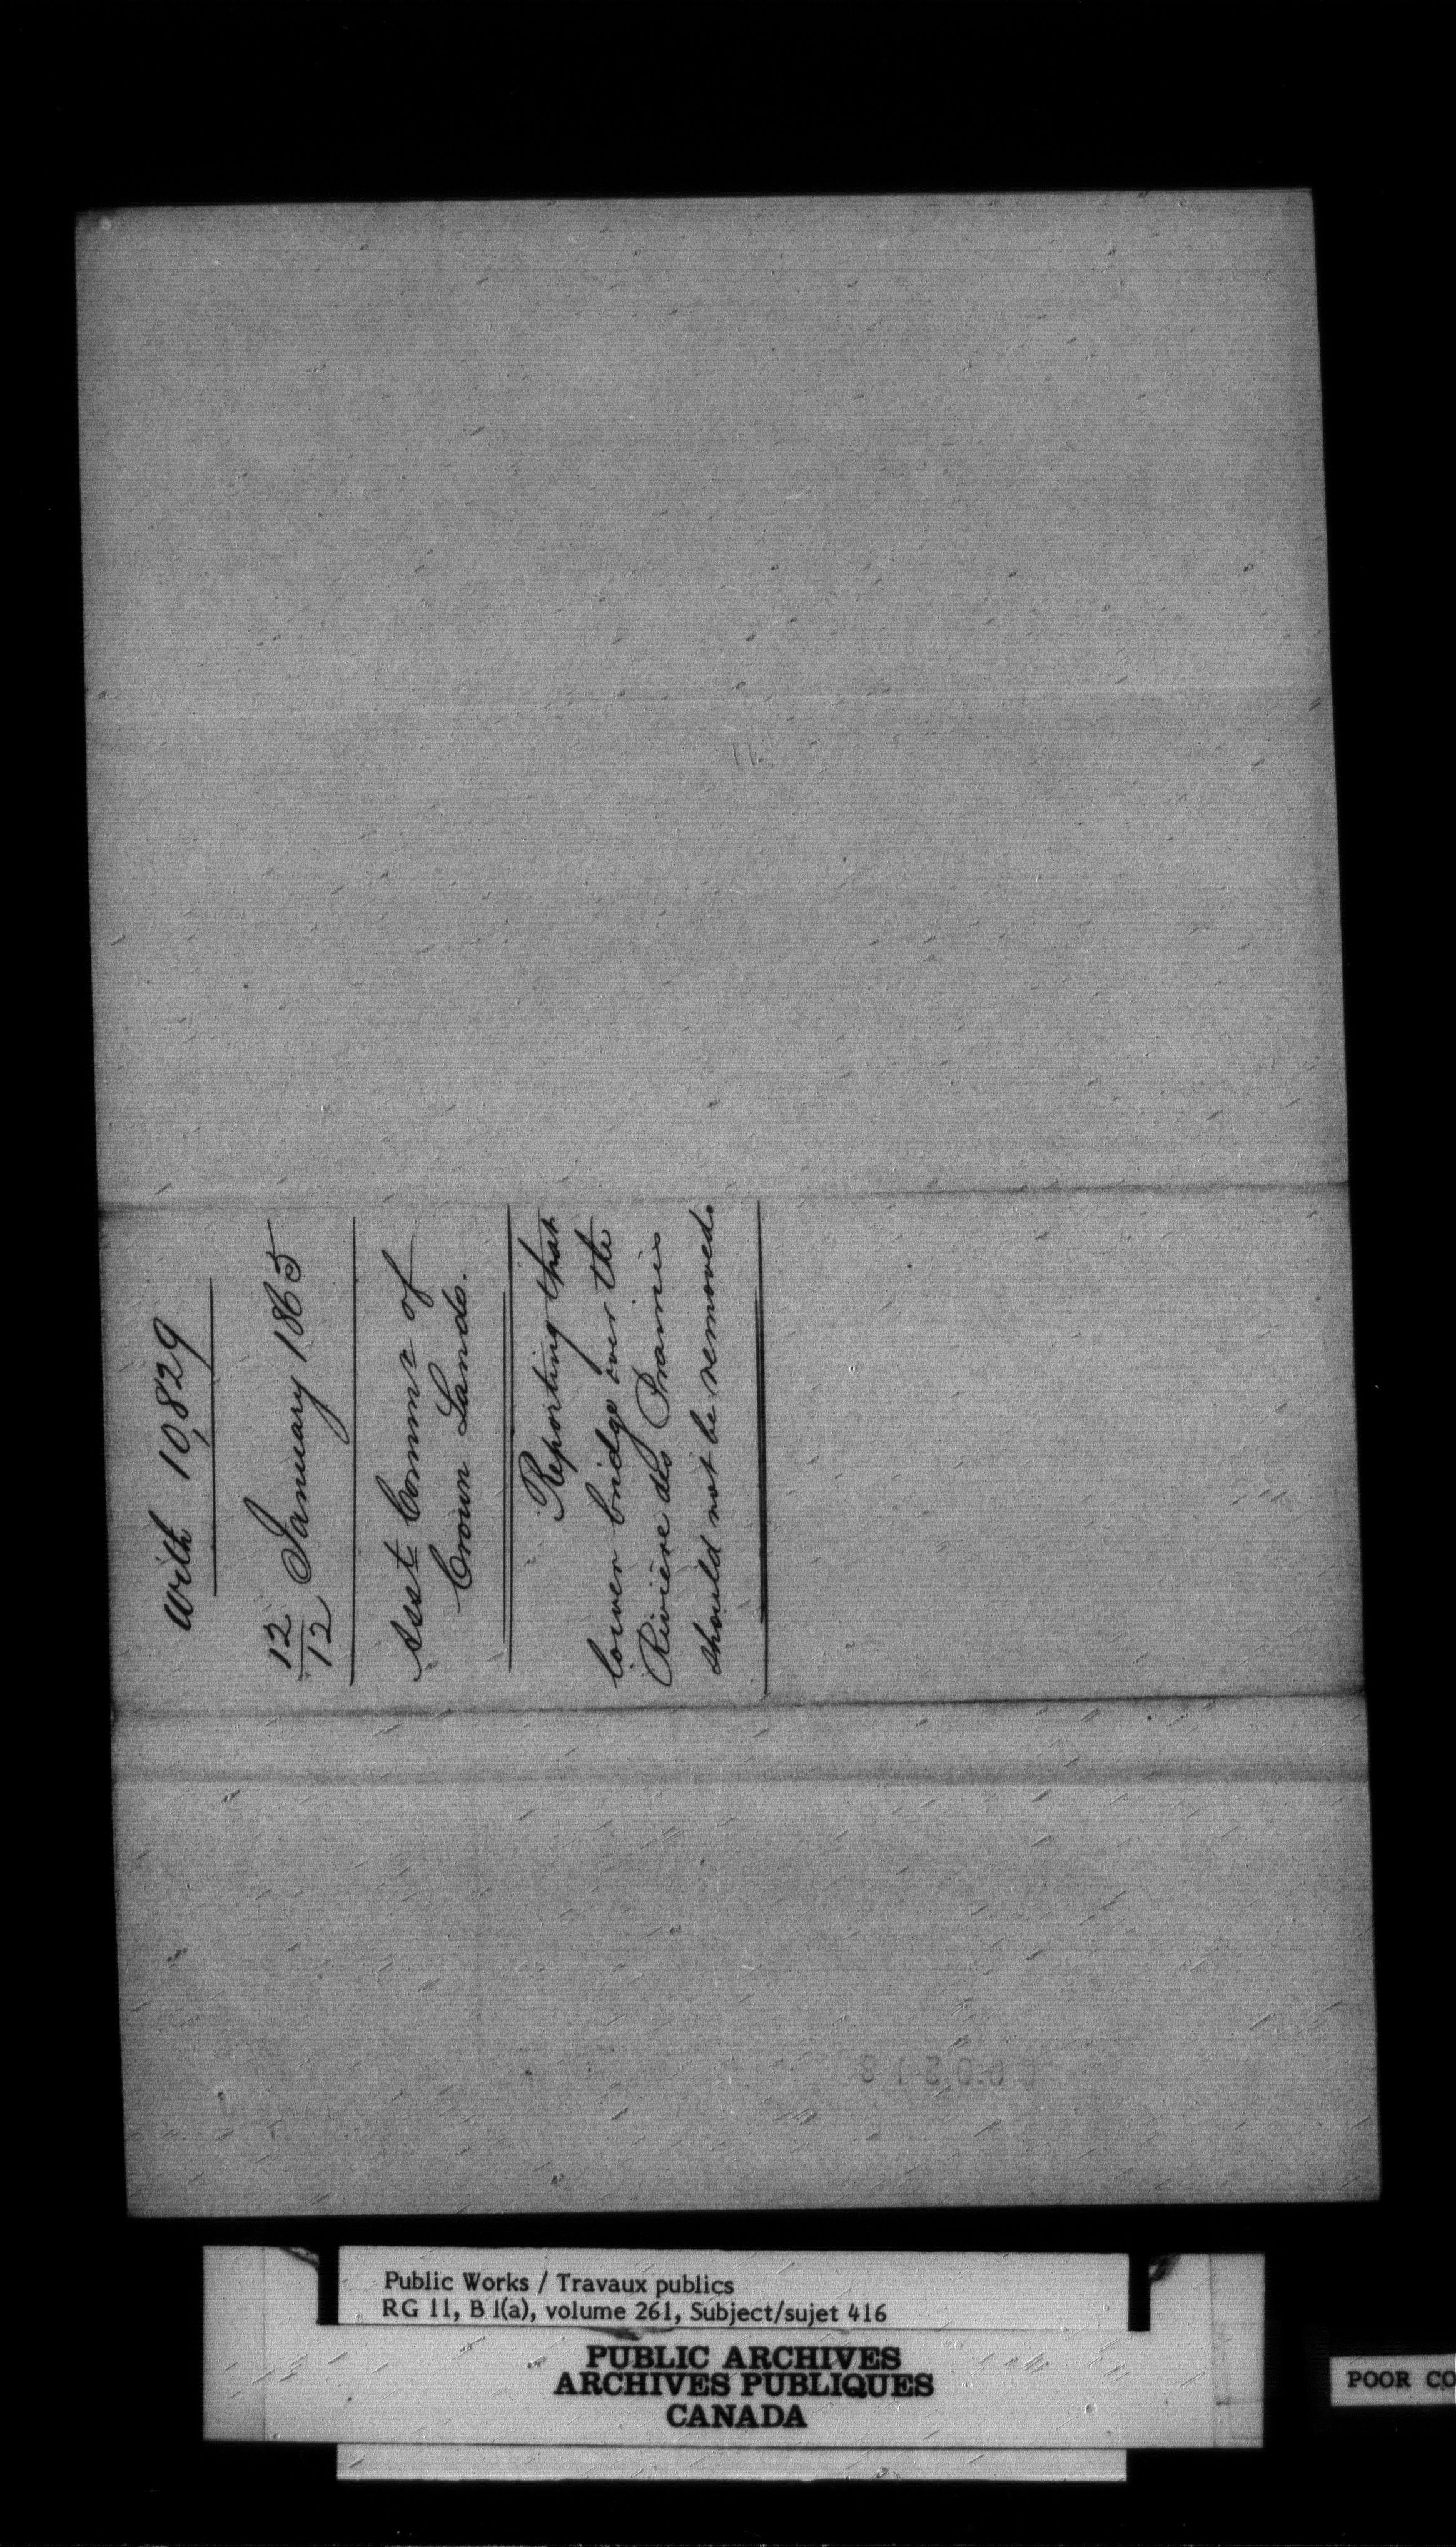 with 10,829
12/12 January 1865
Asst Commr of
Crown Lands.
Reporting that
lower bridge over the
Rivière des Prairies
should not be removed.
000218
Public Works / Travaux publics
RG 11, B 1(a), volume 261, Subject/sujet 416
PUBLIC ARCHIVES
ARCHIVES PUBLIQUES
CANADA
POOR CO